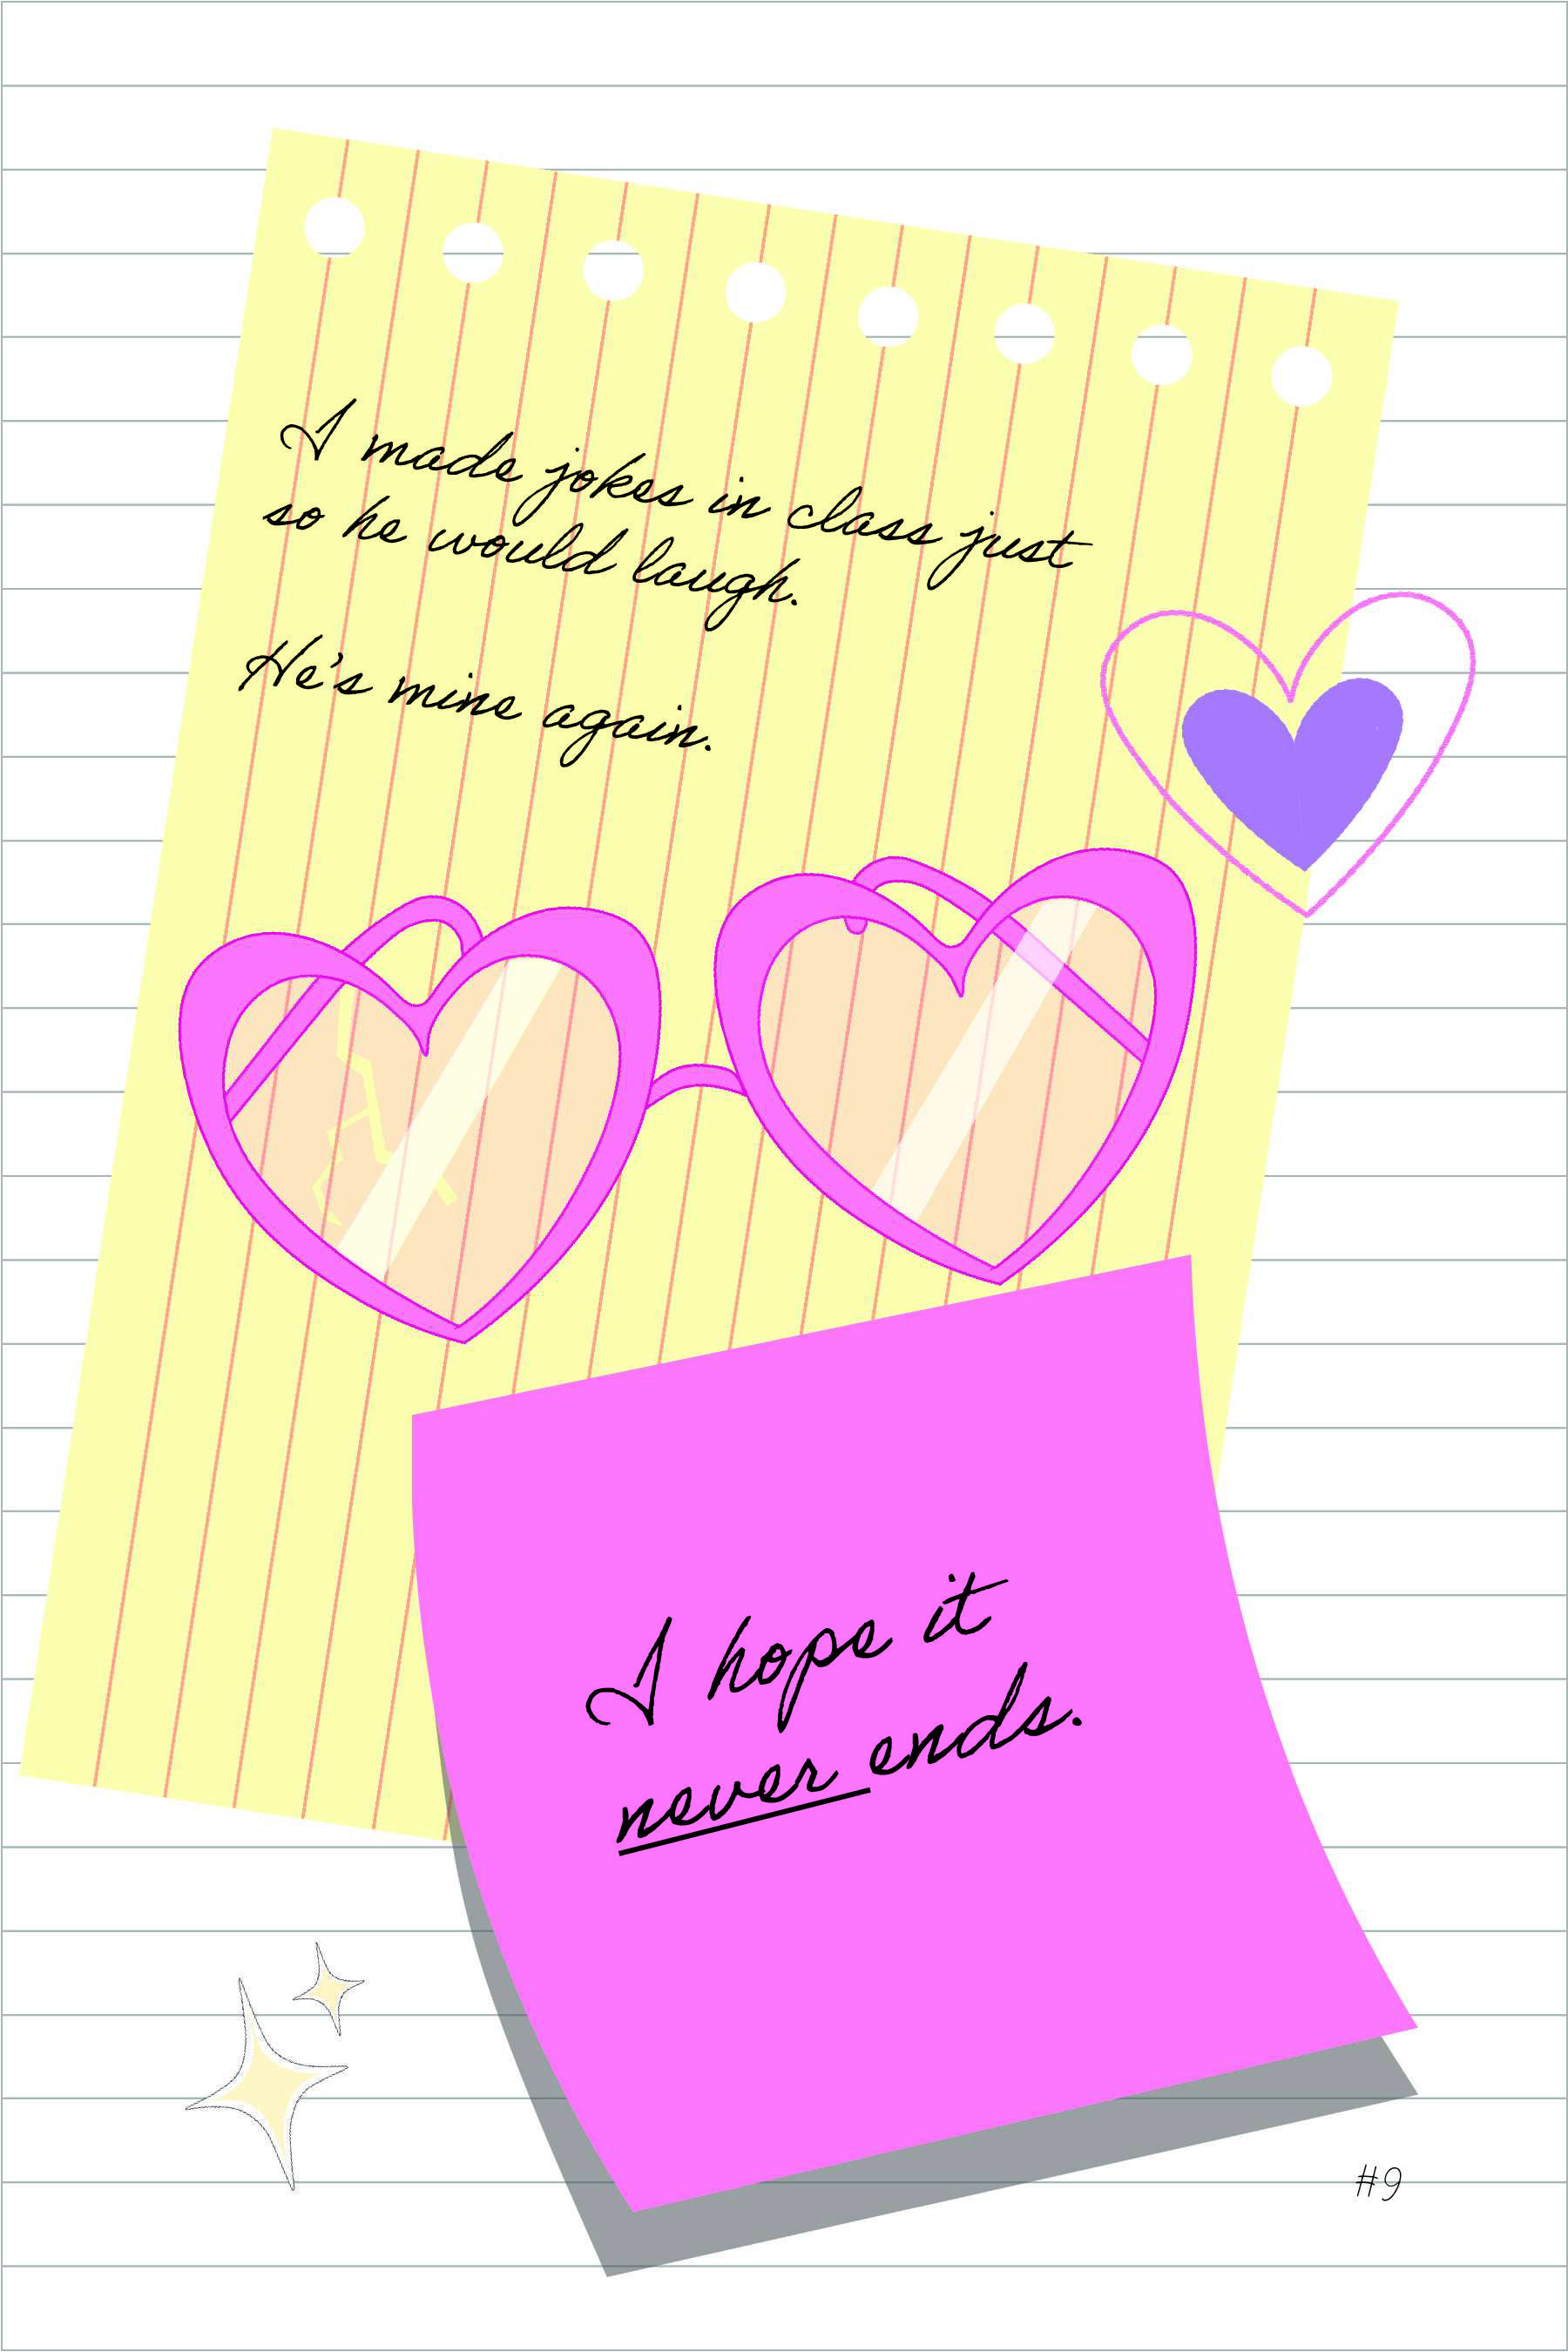 I made jokes in class just
so he would laugh.
He's mine again.
I hope it
never ends.
#9